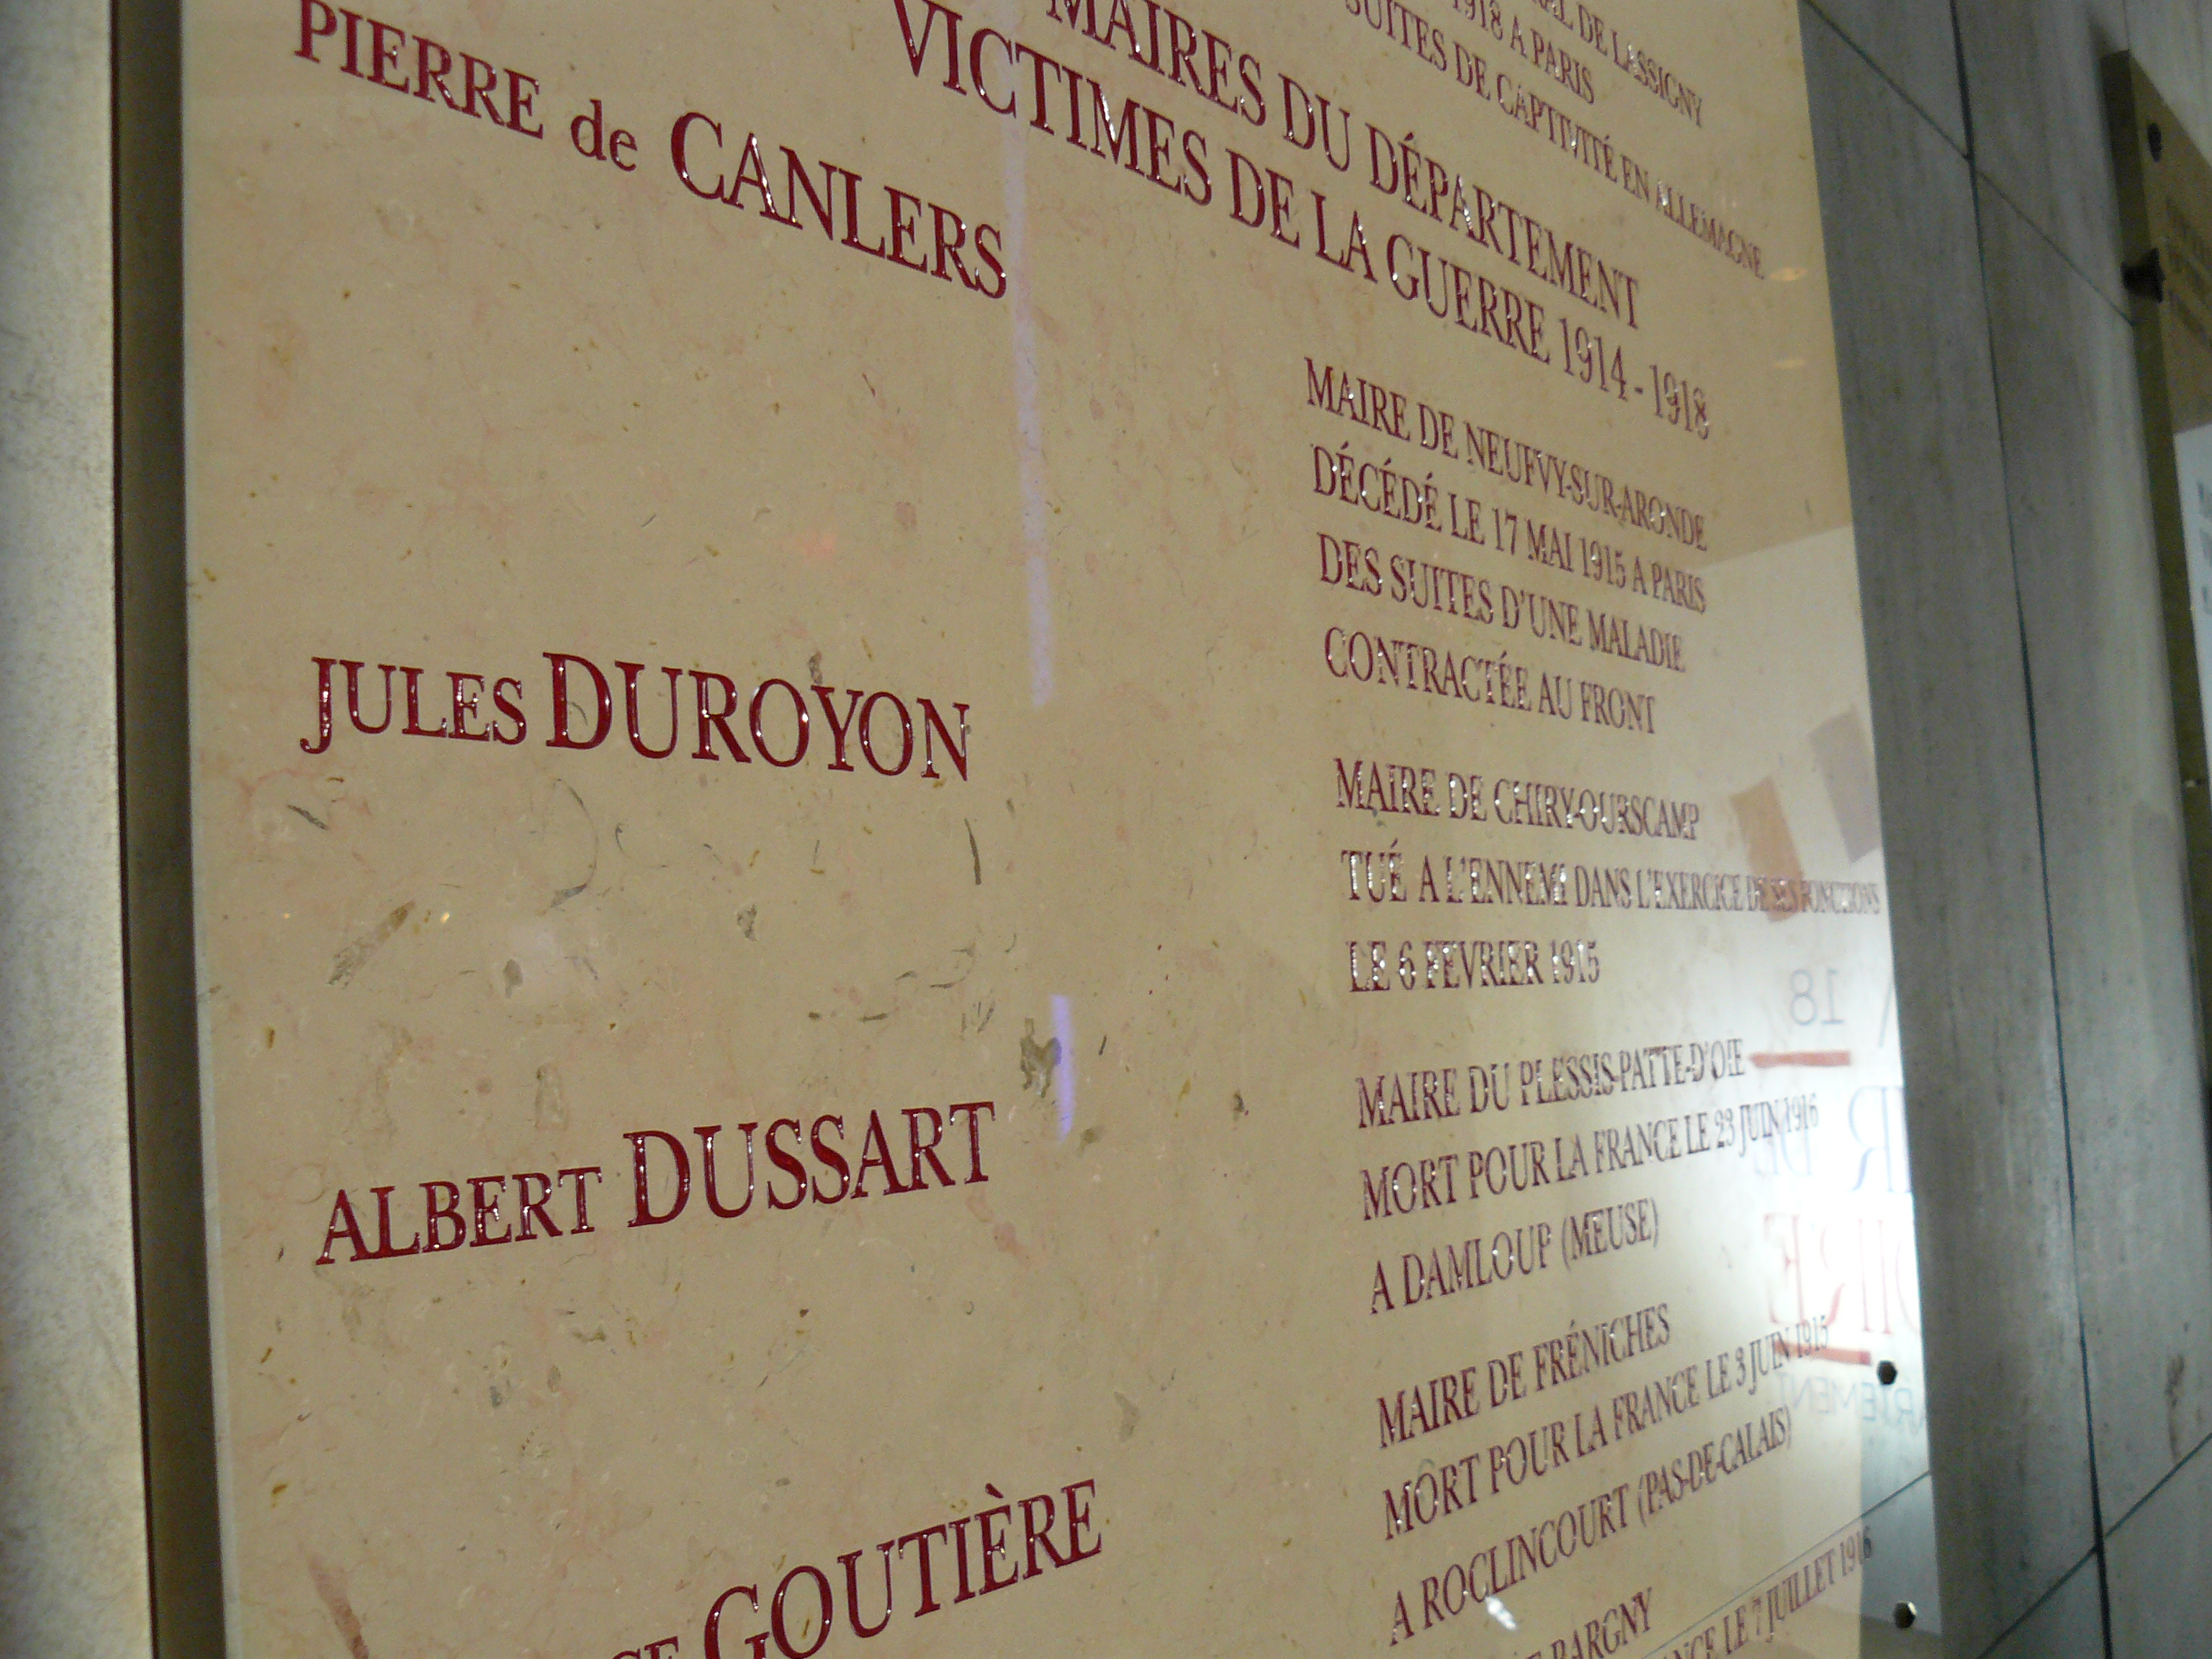 DE LASSIGNY
1918 A PARIS
SUITES DE CAPTIVITÉ EN ALLEMAGNE
MAIRES DU DÉPARTEMENT
VICTIMES DE LA GUERRE 1914 - 1918
PIERRE de CANLERS
MAIRE DE NEUFVY-SUR-ARONDE
DÉCÉDÉ LE 17 MAI 1915 A PARIS
DES SUITES D'UNE MALADIE
CONTRACTÉE AU FRONT
JULES DUROYON
MAIRE DE CHIRY-OURSCAMP
TUÉ A L'ENNEMI DANS L'EXERCICE DE SES FONCTIONS
LE 6 FEVRIER 1915
ALBERT DUSSART
MAIRE DU PLESSIS-PATTE-D'OIE
MORT POUR LA FRANCE LE 23 JUIN 1916
A DAMLOUP (MEUSE)
GOUTIÈRE
MAIRE DE FRÉNICHES
MORT POUR LA FRANCE LE 3 JUIN 1915
A ROCLINCOURT (PAS-DE-CALAIS)
BARGNY
LE 7 JUILLET 1916